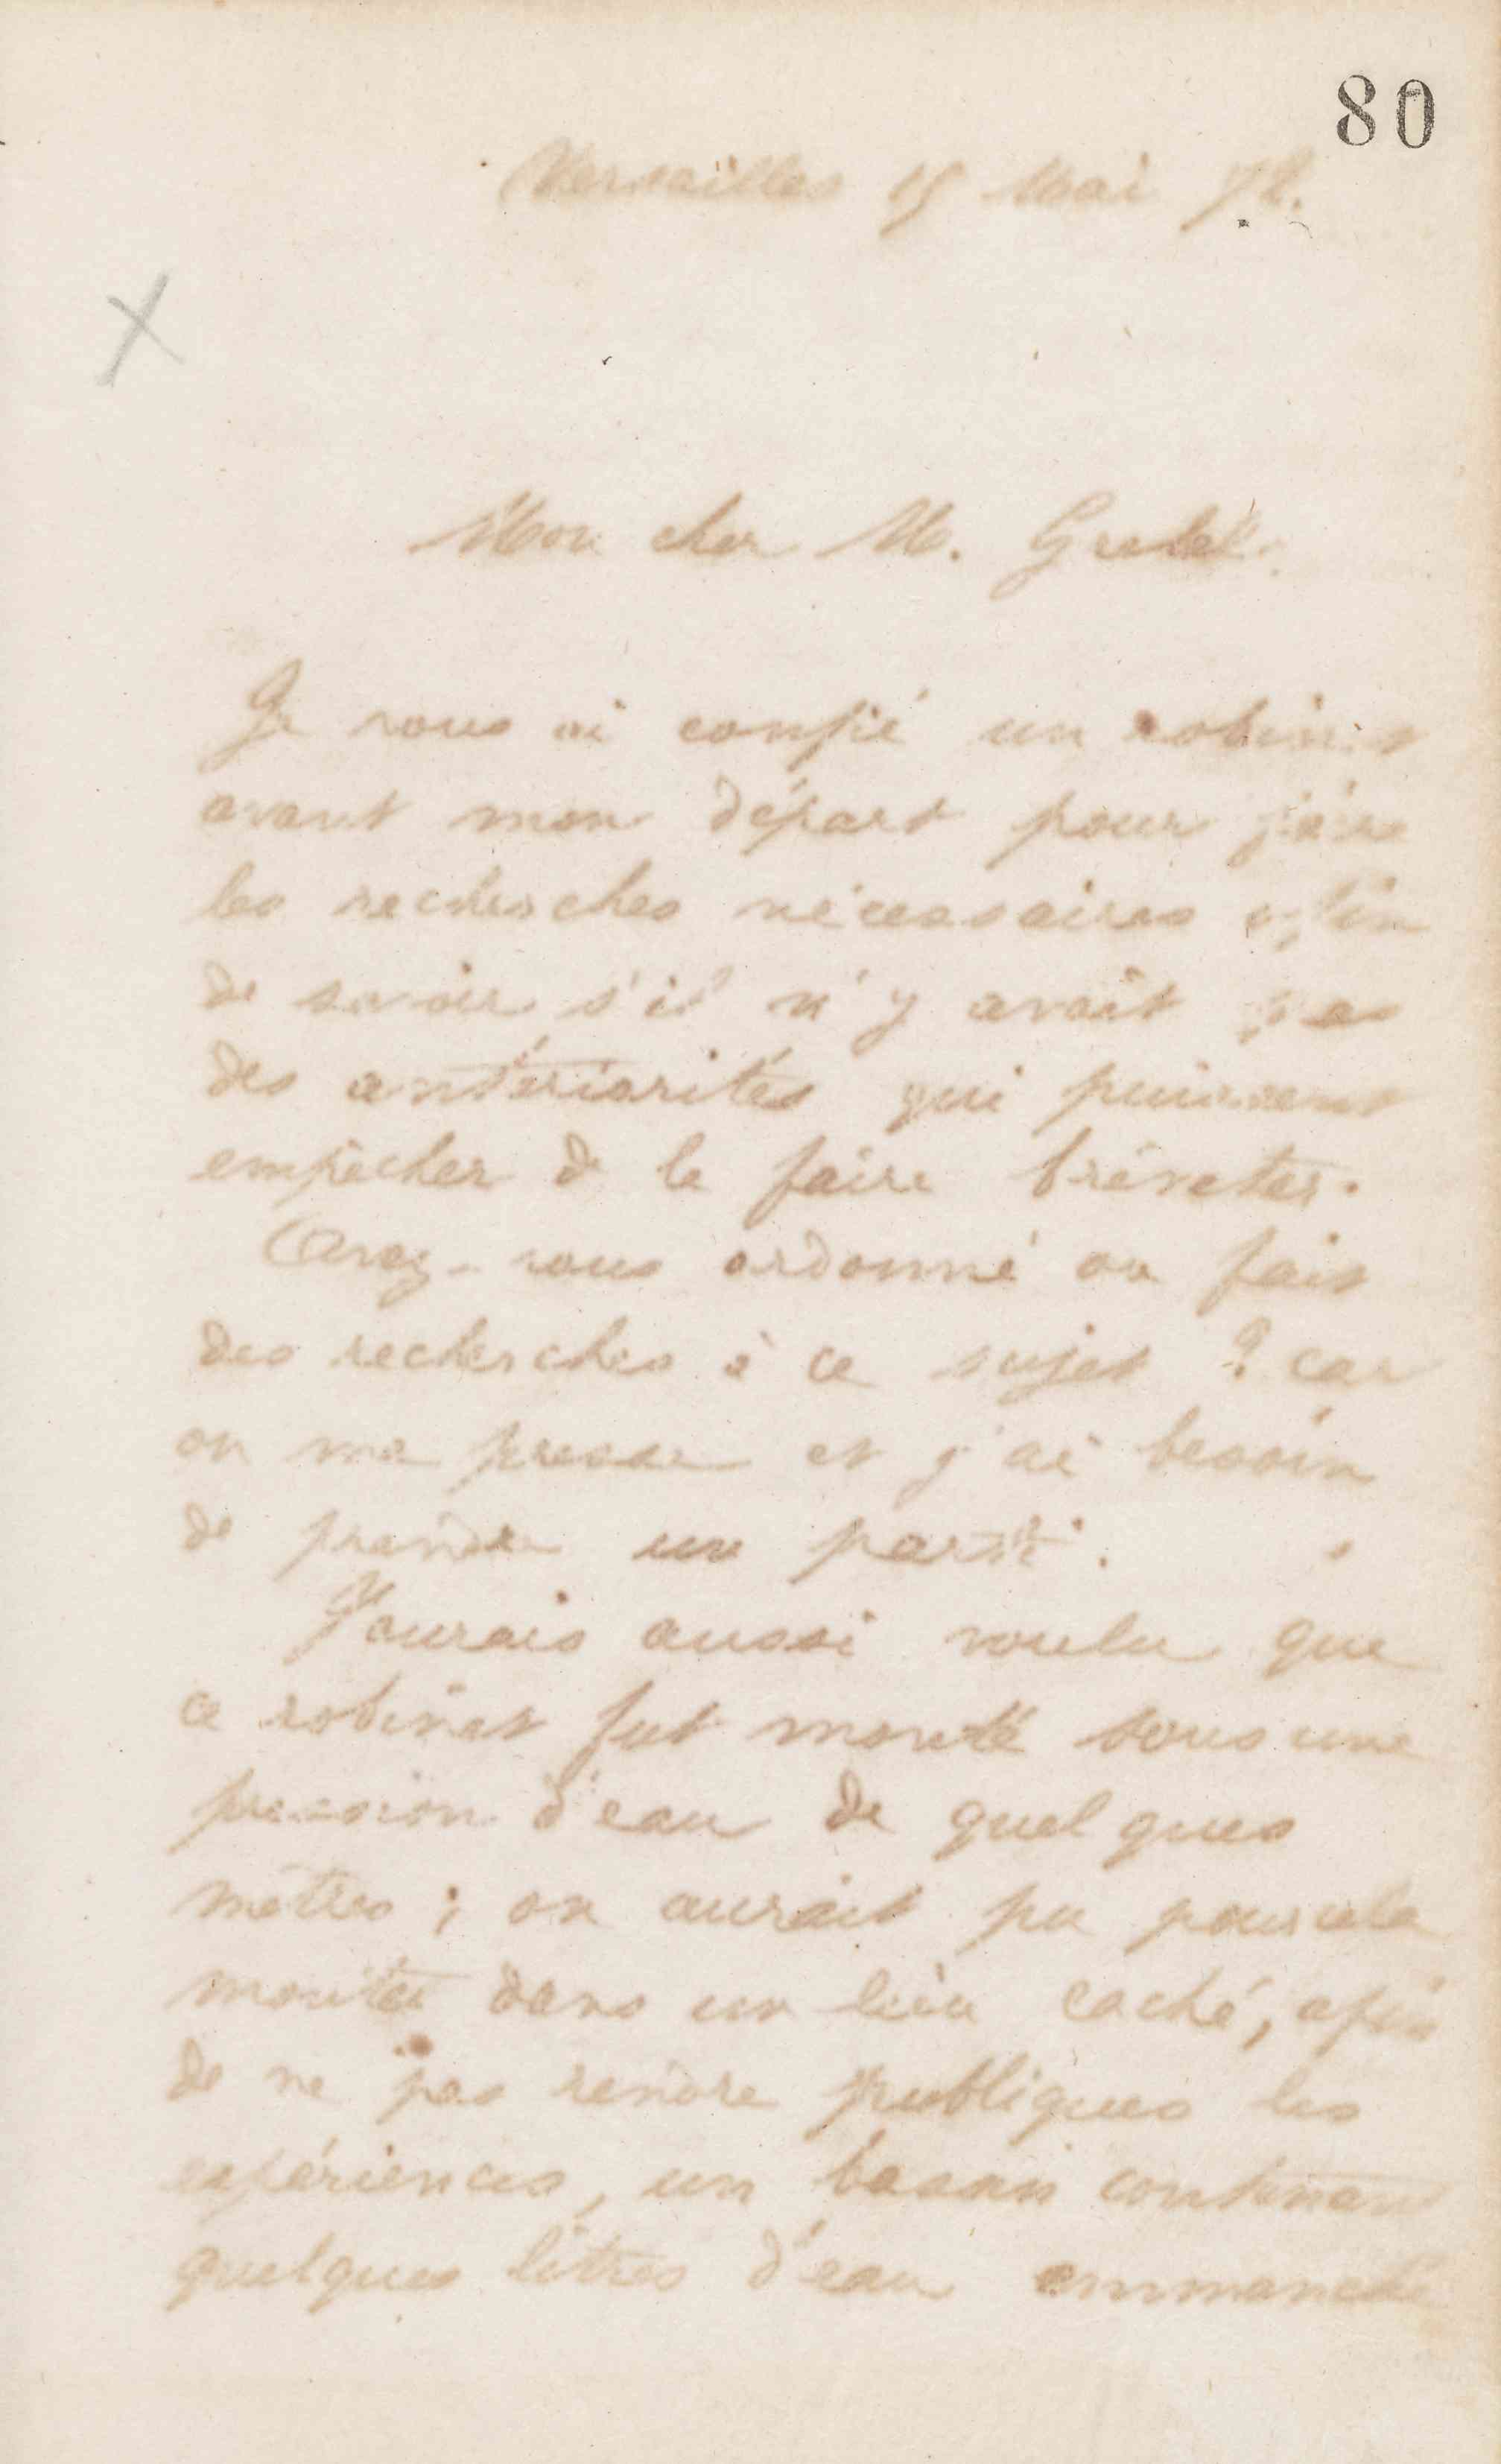 80
Versailles 15 Mai 72.
X
Mon cher M. Grebel.
Je vous ai confié un robinet
avant mon départ pour faire
les recherches nécessaires afin
de savoir s'il n'y avait pas
des antériorités qui puissent
empêcher de le faire bréveter.
Avez-vous ordonné ou fait
des recherches à ce sujet ? car
on me presse et j'ai besoin
de prendre un parti.
J'aurais aussi voulu que
ce robinet fut monté sous une
pression d'eau de quelques
mètres ; on aurait pu pour cela
monter dans un lieu caché, afin
de ne pas rendre publiques les
expériences, un bassin contenant
quelques litres d'eau emmanché